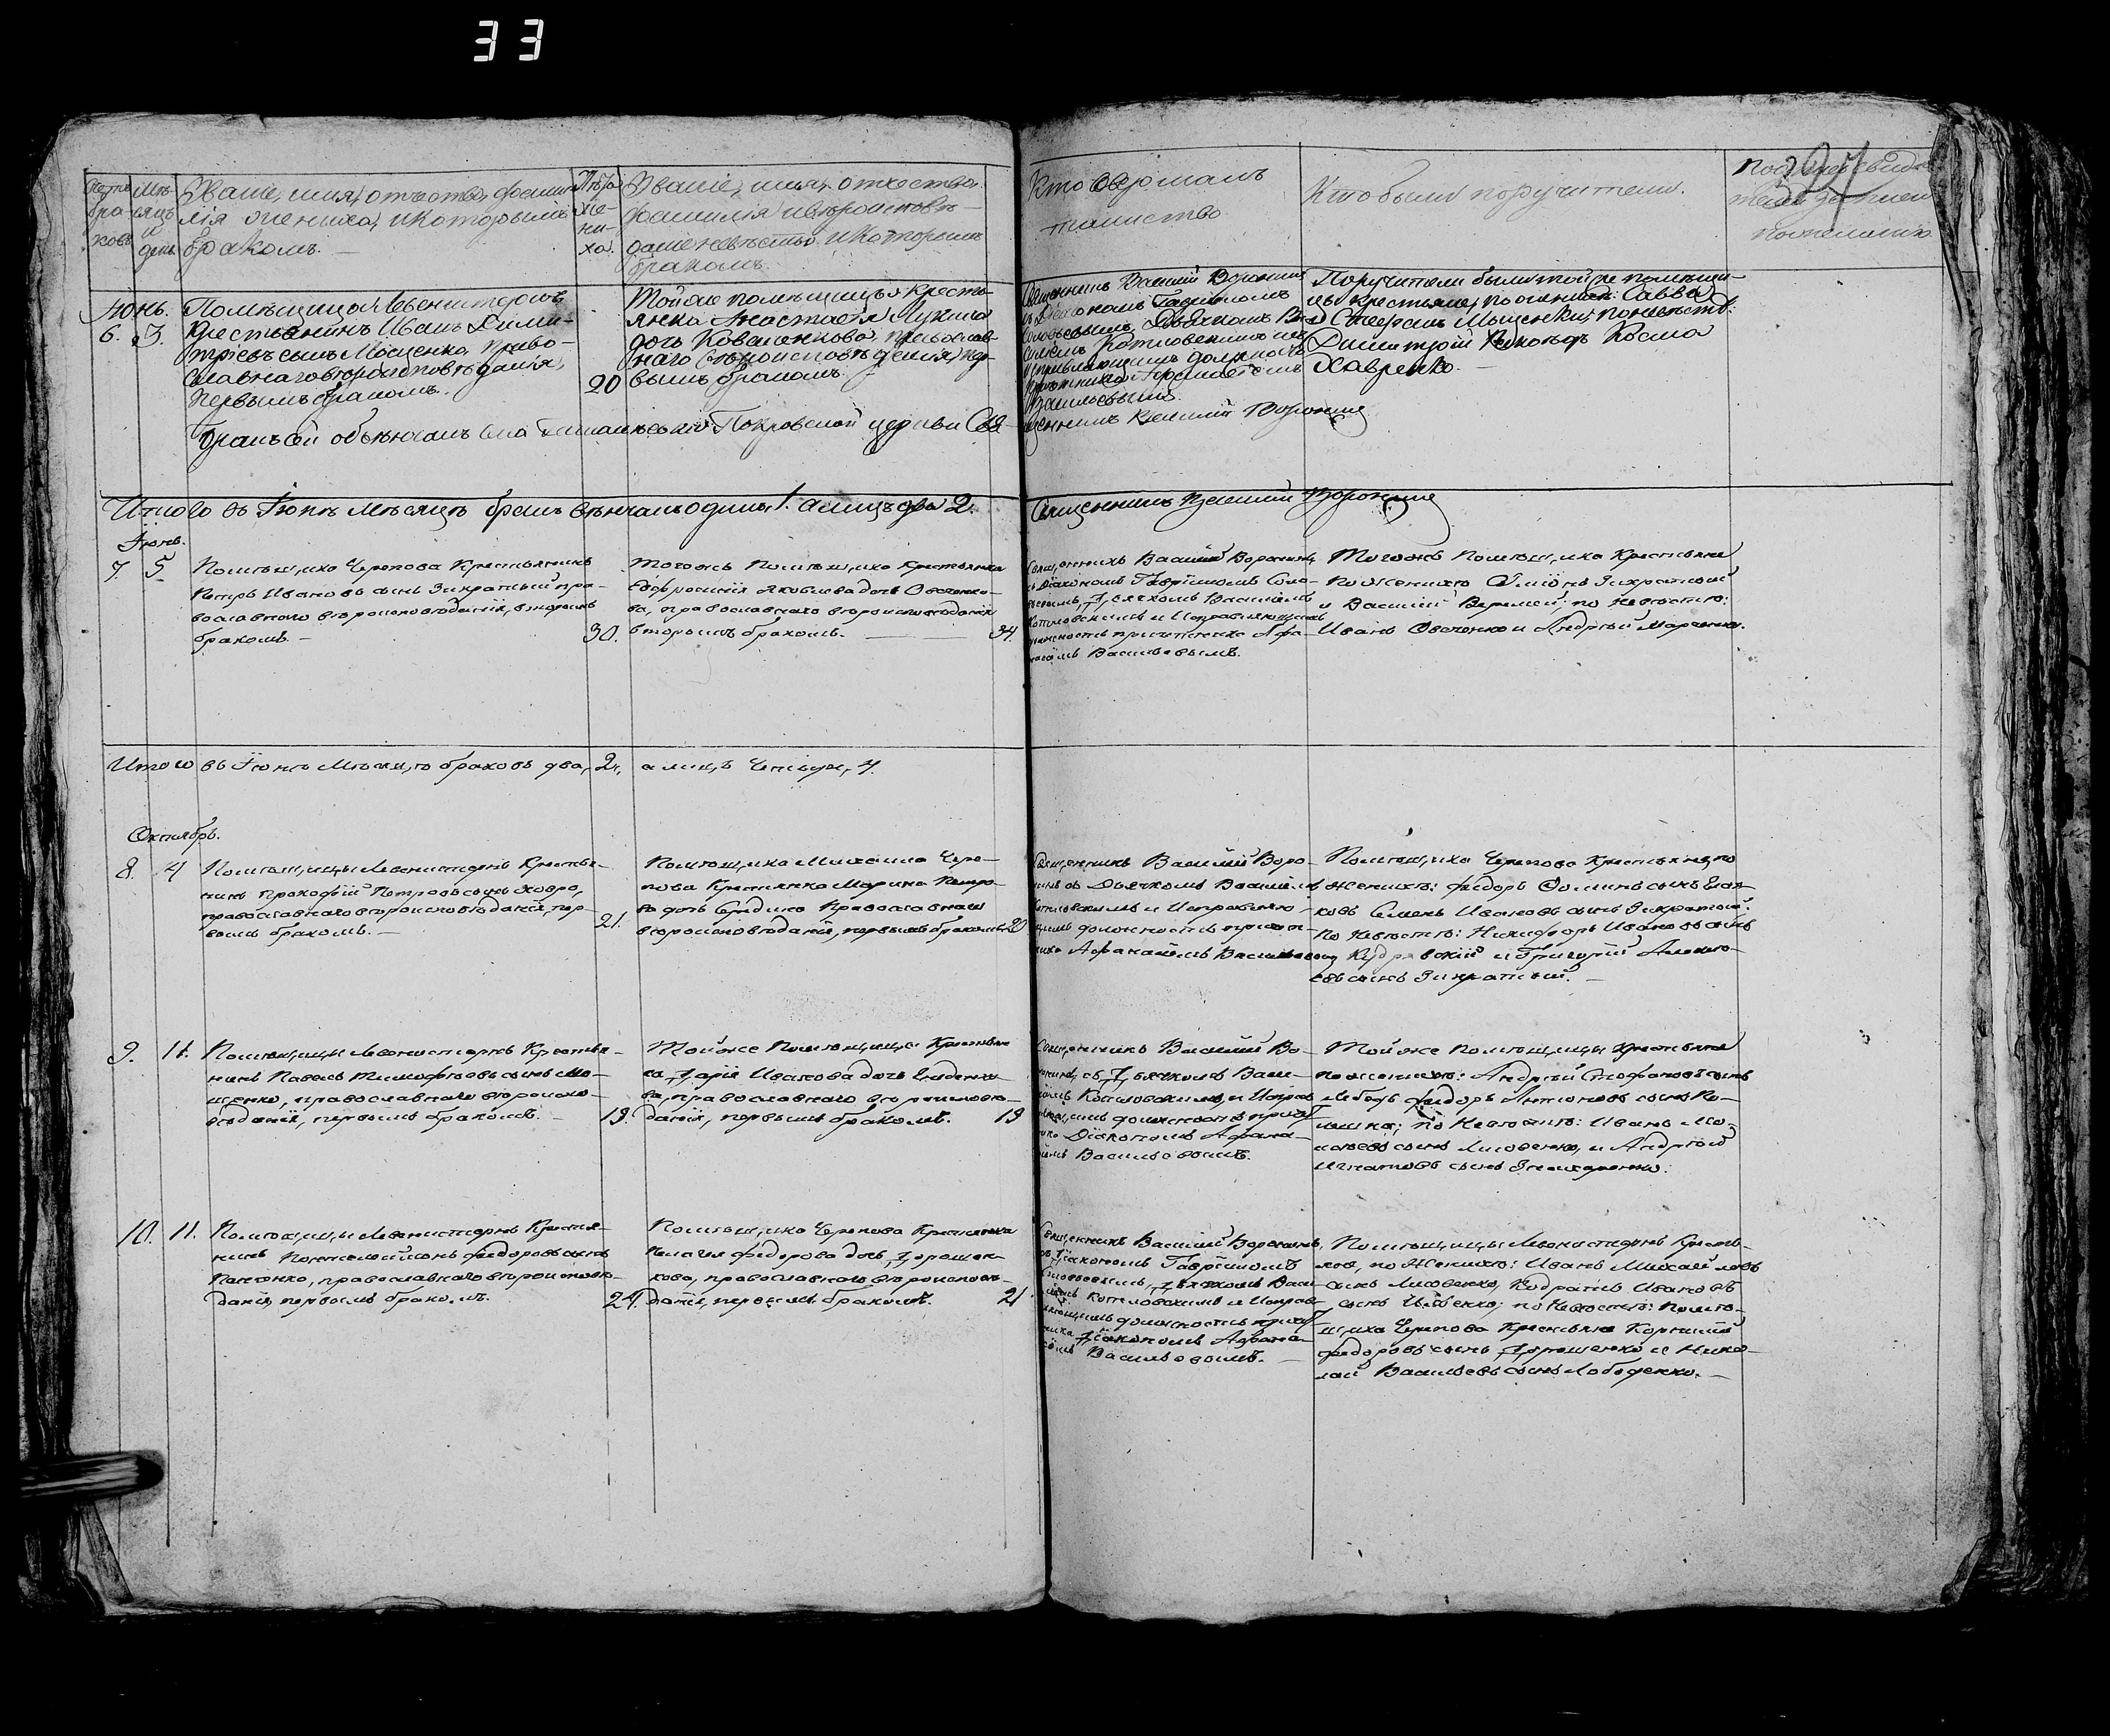 33
Званіе, имя, отчество, фами-
лія жениха, и которымъ
бракомъ.
Лѣта
же-
ни-
ха.
Званіе, имя, отчество,
фамилія и вѣроисповѣ-
даніе невѣсты. и которымъ
бракомъ.
Кто совершалъ
таинство
Кто были поручители.
Іюнь.
6. 3.
Помѣщицы Левенштернъ
крестьянинъ Иванъ Дими-
тріевъ сынъ Мощенко, право-
славнаго вѣроисповѣданія,
первымъ бракомъ.
20
Той же помѣщицы кресть-
янка Анастасія Лукина
дочь Коваленкова, православ-
наго вѣроисповѣданія, пер-
вымъ бракомъ.
Священникъ Василій Воронинъ
съ Діакономъ Гавріиломъ
должность
Васильевымъ.
Поручители были той же помѣщи-
цы крестьяне, по женихѣ: Савва
и Стефанъ Мощенки; по невѣстѣ:
Димитрій и Косма
Хавренко.
Бракъ сей обвѣнчалъ Покровской церкви Свя-
щенникъ Василій Воронинъ
Итого въ Іюнѣ мѣсяцѣ бракъ вѣнчанъ одинъ, 1. а лицъ два 2.
Священникъ Василій Воронинъ
Іюнь.
7. 5
Помѣщика Черепова Крестьянинъ
Петръ Ивановъ сынъ Закратный пра-
вославнаго вѣроисповѣданія, вторымъ
бракомъ.
30.
Тогожъ Помѣщика Крестьянка
Ефросинія Яковлева дочь Овченко-
ва, православнаго вѣроисповѣданія
вторымъ бракомъ.
34.
Священникъ Василій Воронинъ,
съ Діакономъ Гавріиломъ Соло-
вьевымъ, Дьячкомъ Василіемъ
Котловскимъ и Исправляющимъ
должность причетника Афа-
насіемъ Васильевымъ.
Тогожъ Помѣщика Крестьяне
По Женихѣ
и Василій Веремей; по Невѣстѣ:
Иванъ Овченко и Андрей Марченко.
Итого въ Іюнѣ Мѣсяцѣ браковъ два, 2. а лицъ Четыре, 4.
Октябрь.
8. 4
Помѣщицы Левенштернъ Крестья-
нинъ Прокофій Петровъ сынъ Ховра,
православнаго вѣроисповѣданія, пер-
вымъ бракомъ.
21.
Помѣщика Михаила Чере-
пова Крестьянка Марина Петро-
ва дочь Середина Православнаго
вѣроисповѣданія, первымъ бракомъ.
20
Священникъ Василій Воро-
нинъ съ Дьячкомъ Василіемъ
Котловскимъ и Исправляю-
щимъ должность причет-
ника Афанасіемъ Васильевымъ
Помѣщика Черепова Крестьяне, по
женихѣ: Федоръ Фоминъ сынъ
Семенъ Ивановъ сынъ Закратный:
По Невѣстѣ: Никифоръ Ивановъ сынъ
Кудрявскій и Григорій Алексѣ-
евъ сынъ Закратный.
9. 11.
Помѣщицы Левенштернъ Крестья-
нинъ Павелъ Тимофѣевъ сынъ Мо-
щенко, православнаго вѣроиспо-
вѣданія, первымъ бракомъ.
19.
Той же Помѣщицы Крестьян-
ка Дарія Иванова дочь
православнаго вѣроисповѣ-
данія, первымъ бракомъ.
19
Священникъ Василій Во-
ронинъ, съ Дьячкомъ Васи-
ліемъ Котловскимъ, и Исправ-
ляющимъ должность причет-
ника Діакономъ Афана-
сіемъ Васильевымъ.
Той же Помѣщицы Крестьяне
по женихѣ: Андрей Стефановъ сынъ
Лебедь Федоръ Антоновъ сынъ
по Невѣстѣ: Иванъ
сынъ Лисовенко, и Андрей
Игнатовъ сынъ
10. 11.
Помѣщицы Левенштернъ Крестья-
нинъ Пантелеймонъ Федоровъ сынъ
православнаго вѣроисповѣ-
данія первымъ бракомъ.
24.
Помѣщика Черепова Крестьянка
Пелагія Федорова дочь Дорошен-
кова, православнаго вѣроисповѣ-
данія, первымъ бракомъ.
21
Священникъ Василій Воронинъ,
съ Діакономъ Гавріиломъ
Соловьевымъ, Дьячкомъ Васи-
ліемъ Котловскимъ и Исправ-
ляющимъ должность причет-
ника Діакономъ Афана-
сіемъ Васильевымъ.
Помѣщицы Левенштернъ Кресть-
яне, по Женихѣ: Иванъ Михайловъ
сынъ Лисовенко, Кодратъ Ивановъ
сынъ по Невѣстѣ: Помѣ-
щика Черепова Крестьяне Корнилій
Федоровъ сынъ Дорошенко и Нико-
лай Васильевъ сынъ Лободенко.